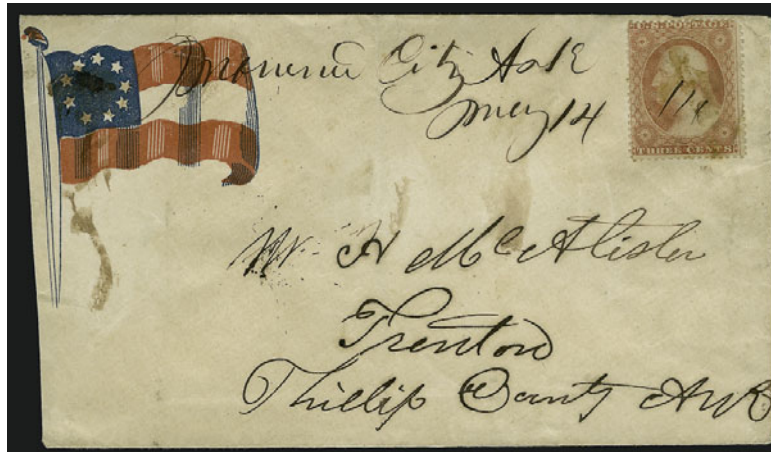 City Ark
May 14
U.S. POSTAGE
THREE CENTS
W H McAlister
Trenton
Phillip County Ark